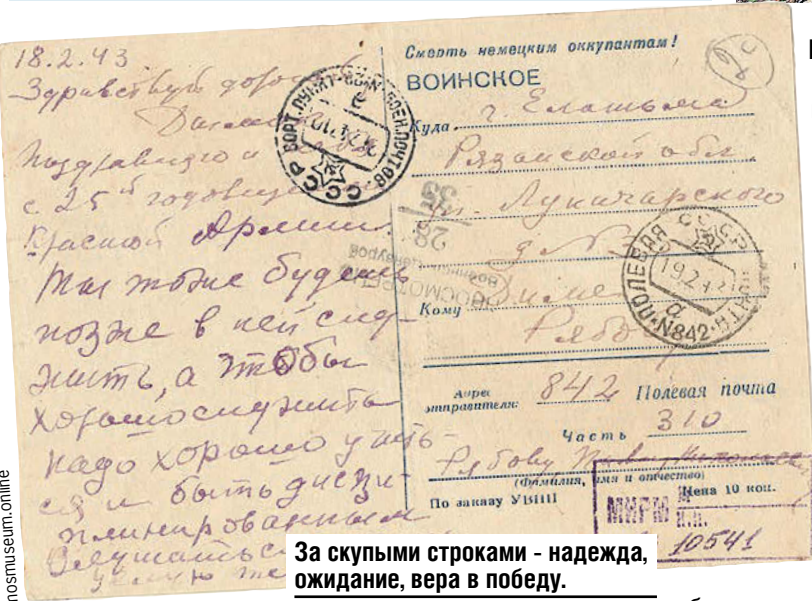 18.2.43
Здравствуй дорогой
Поздравляю
с 25й годовщиной
Красной Армии.
Ты тоже будешь
позже в ней слу-
жить, а чтобы
хорошо служить
надо хорошо учить-
ся и быть дисци-
плинированным
Слушаться
Смерть немецким оккупантам!
ВОИНСКОЕ
Куда г. Елатьма
Рязанской обл.
ул. Луначарского
д №3
Кому Диме
Рябо
Адрес отправителя: 842 Полевая почта
Часть 310
Рябову
(Фамилия, имя и отчество)
По заказу УВПП
Цена 10 коп.
СССР СОРТ. ПУНКТ
ПРОСМОТРЕНО
Военной Цензурой
28
35
СССР
ПОЛЕВАЯ ПОЧТА
N842
19.2.43
а
МИРМ
10541
mosmuseum.online
За скупыми строками - надежда,
ожидание, вера в победу.